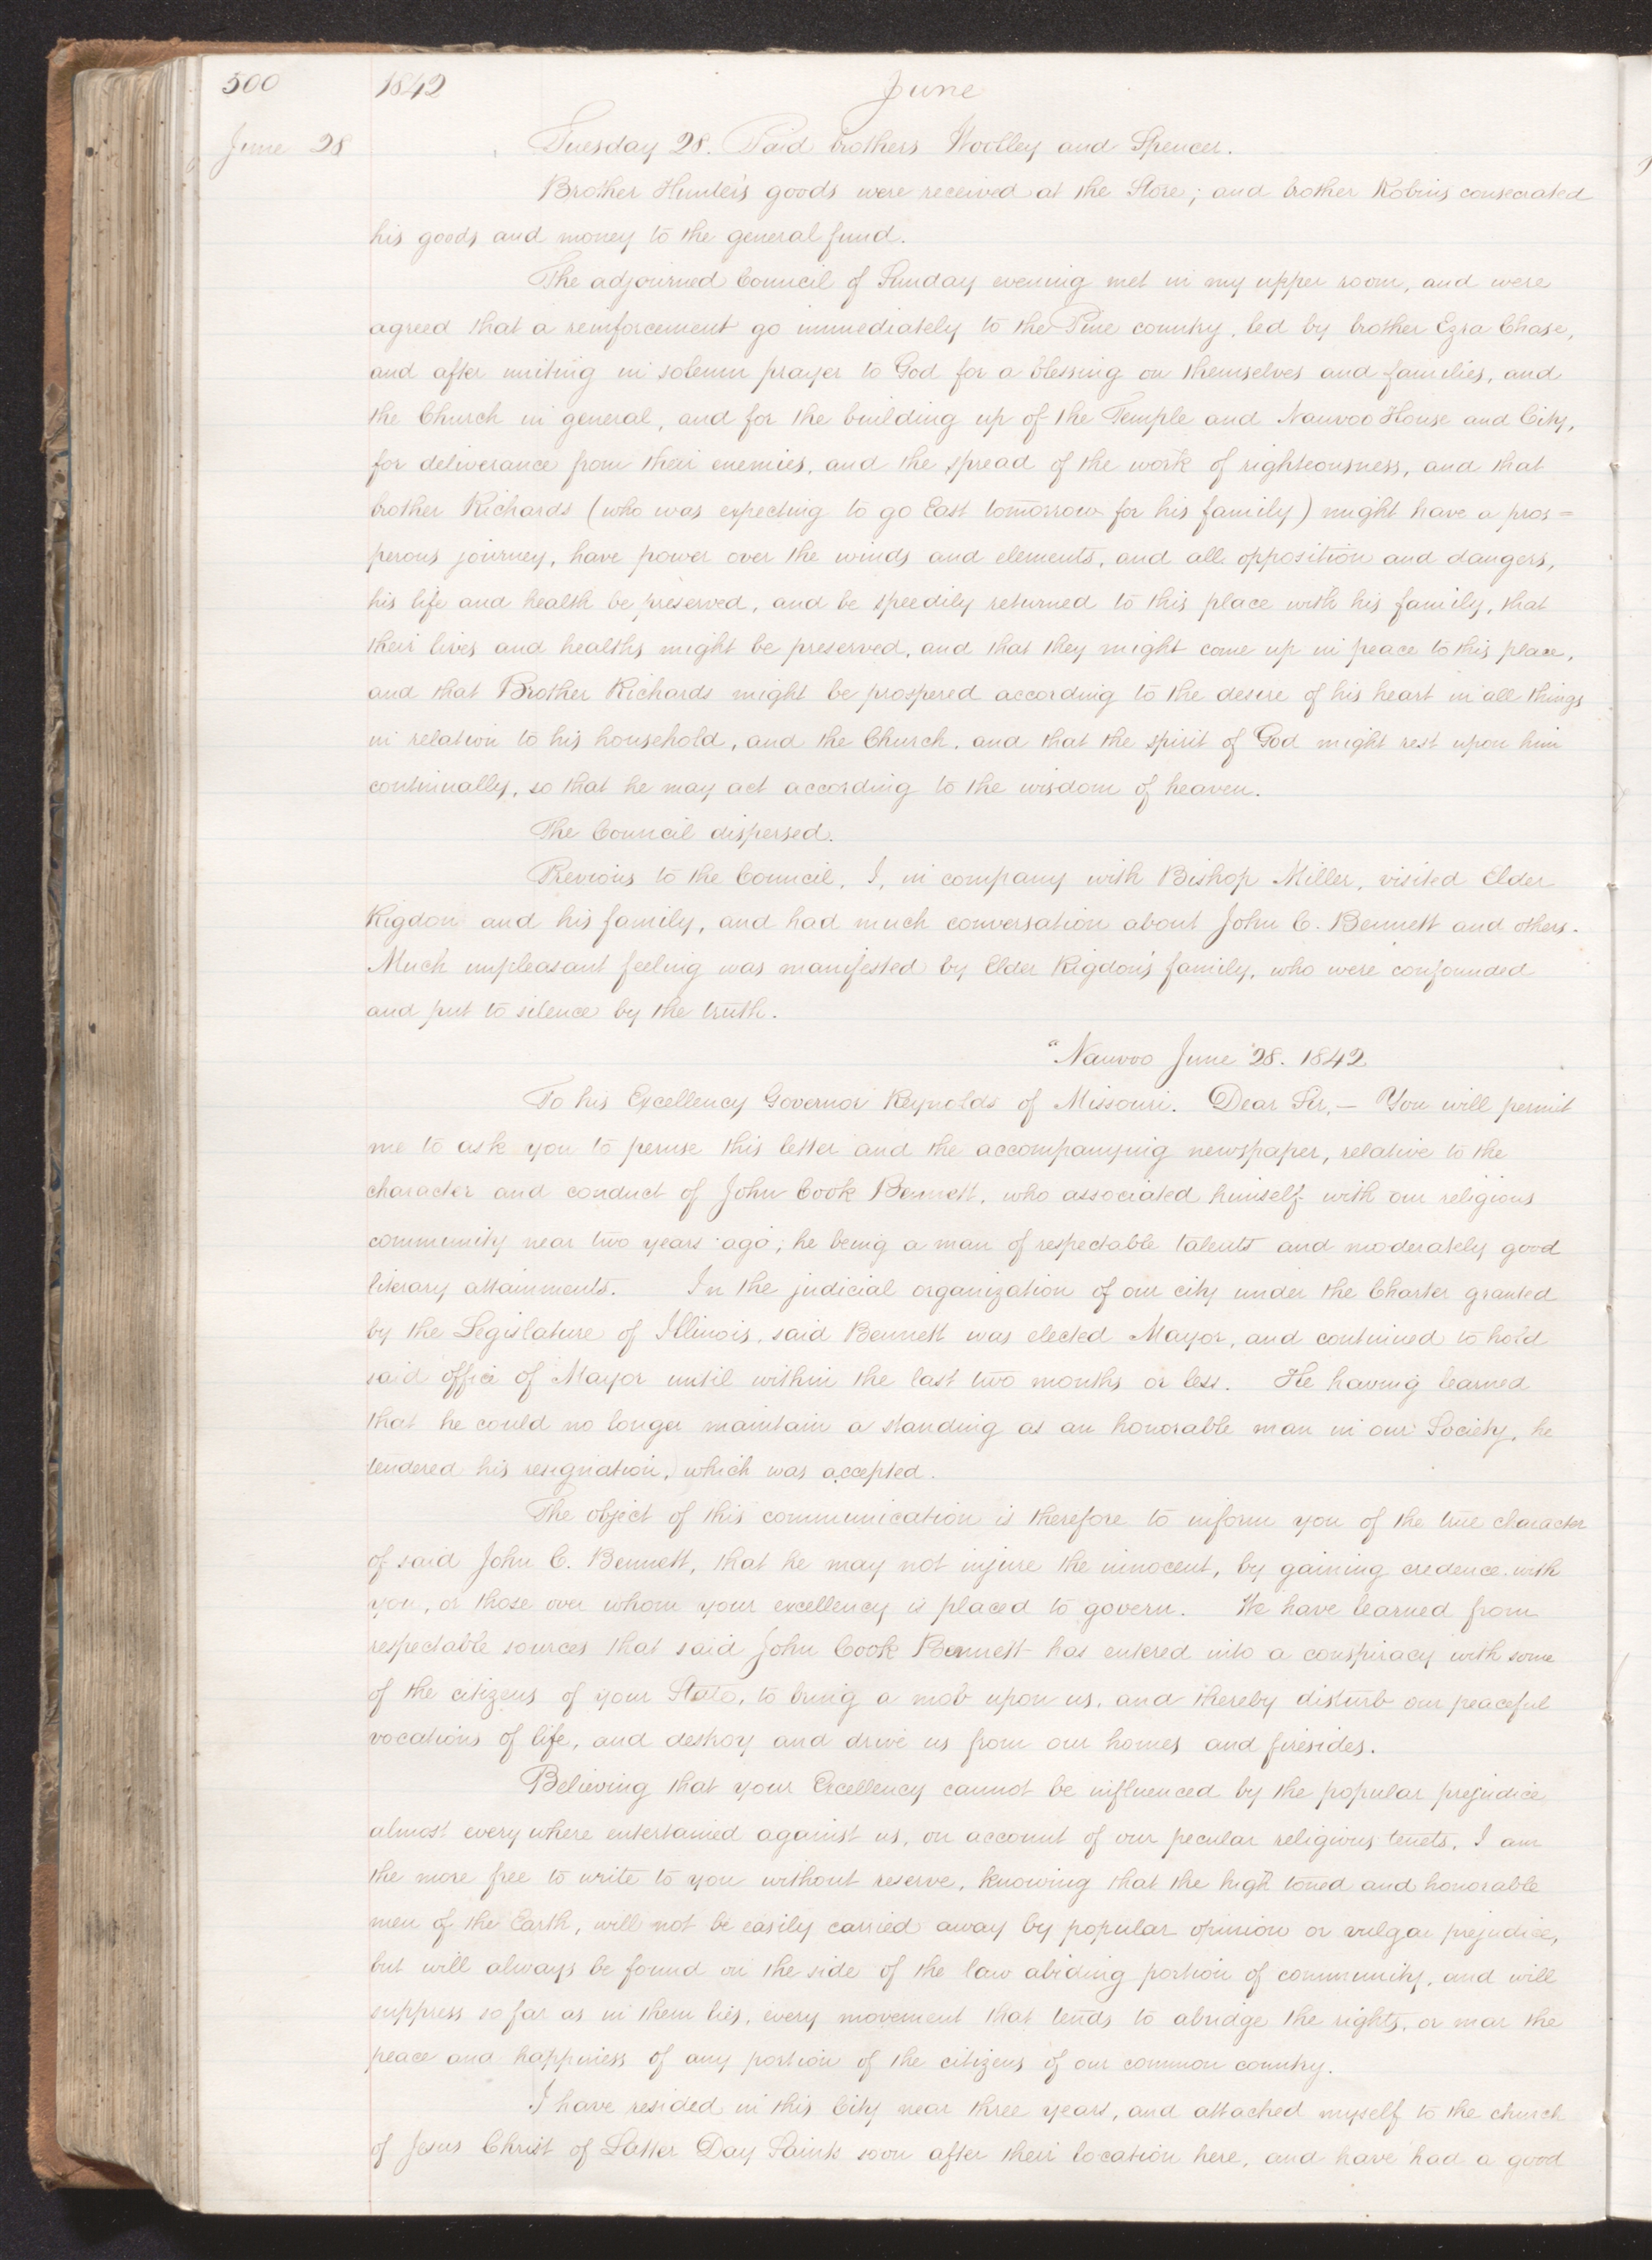 500 1842 June
June 28 Tuesday 28. Paid brothers Woolley and Spencer.
Brother Hunter's goods were received at the Store; and brother Robins consecrated
his goods and money to the general fund.
The adjourned Council of Sunday evening met in my upper room, and were
agreed that a reinforcement go immediately to the Pine country, led by brother Ezra Chase,
and after uniting in solemn prayer to God for a blessing on themselves and families, and
the Church in general, and for the building up of the Temple and Nauvoo House and City,
for deliverance from their enemies, and the spread of the work of righteousness, and that
brother Richards (who was expecting to go East tomorrow for his family) might have a pros=
perous journey, have power over the winds and elements, and all opposition and dangers,
his life and health be preserved, and be speedily returned to this place with his family, that
their lives and healths might be preserved, and that they might come up in peace to this place,
and that Brother Richards might be prospered according to the desire of his heart in all things
in relation to his household, and the Church, and that the spirit of God might rest upon him
continually, so that he may act according to the wisdom of heaven.
The Council dispersed.
Previous to the Council, I, in company with Bishop Miller, visited Elder
Rigdon and his family, and had much conversation about John C. Bennett and others.
Much unpleasant feeling was manifested by Elder Rigdon's family, who were confounded
and put to silence by the truth.
"Nauvoo June 28. 1842
To his Excellency Governor Reynolds of Missouri. Dear Sir,— You will permit
me to ask you to peruse this letter and the accompanying newspaper, relative to the
character and conduct of John Cook Bennett, who associated himself with our religious
community near two years ago; he being a man of respectable talents and moderately good
literary attainments. In the judicial organization of our city under the Charter granted
by the Legislature of Illinois, said Bennett was elected Mayor, and continued to hold
said office of Mayor until within the last two months or less. He having learned
that he could no longer maintain a standing as an honorable man in our Society, he
tendered his resignation, which was accepted.
The object of this communication is therefore to inform you of the true character
of said John C. Bennett, that he may not injure the innocent, by gaining credence with
you, or those over whom your excellency is placed to govern. We have learned from
respectable sources that said John Cook Bennett has entered into a conspiracy with some
of the citizens of your State, to bring a mob upon us, and thereby disturb our peaceful
vocations of life, and destroy and drive us from our homes and firesides.
Believing that your Excellency cannot be influenced by the popular prejudice
almost every where entertained against us, on account of our peculiar religious tenets, I am
the more free to write to you without reserve, knowing that the high toned and honorable
men of the Earth, will not be easily carried away by popular opinion or vulgar prejudice,
but will always be found on the side of the law abiding portion of community, and will
suppress so far as in them lies, every movement that tends to abridge the rights, or mar the
peace and happiness of any portion of the citizens of our common country.
I have resided in this City near three years, and attached myself to the church
of Jesus Christ of Latter Day Saints soon after their location here, and have had a good